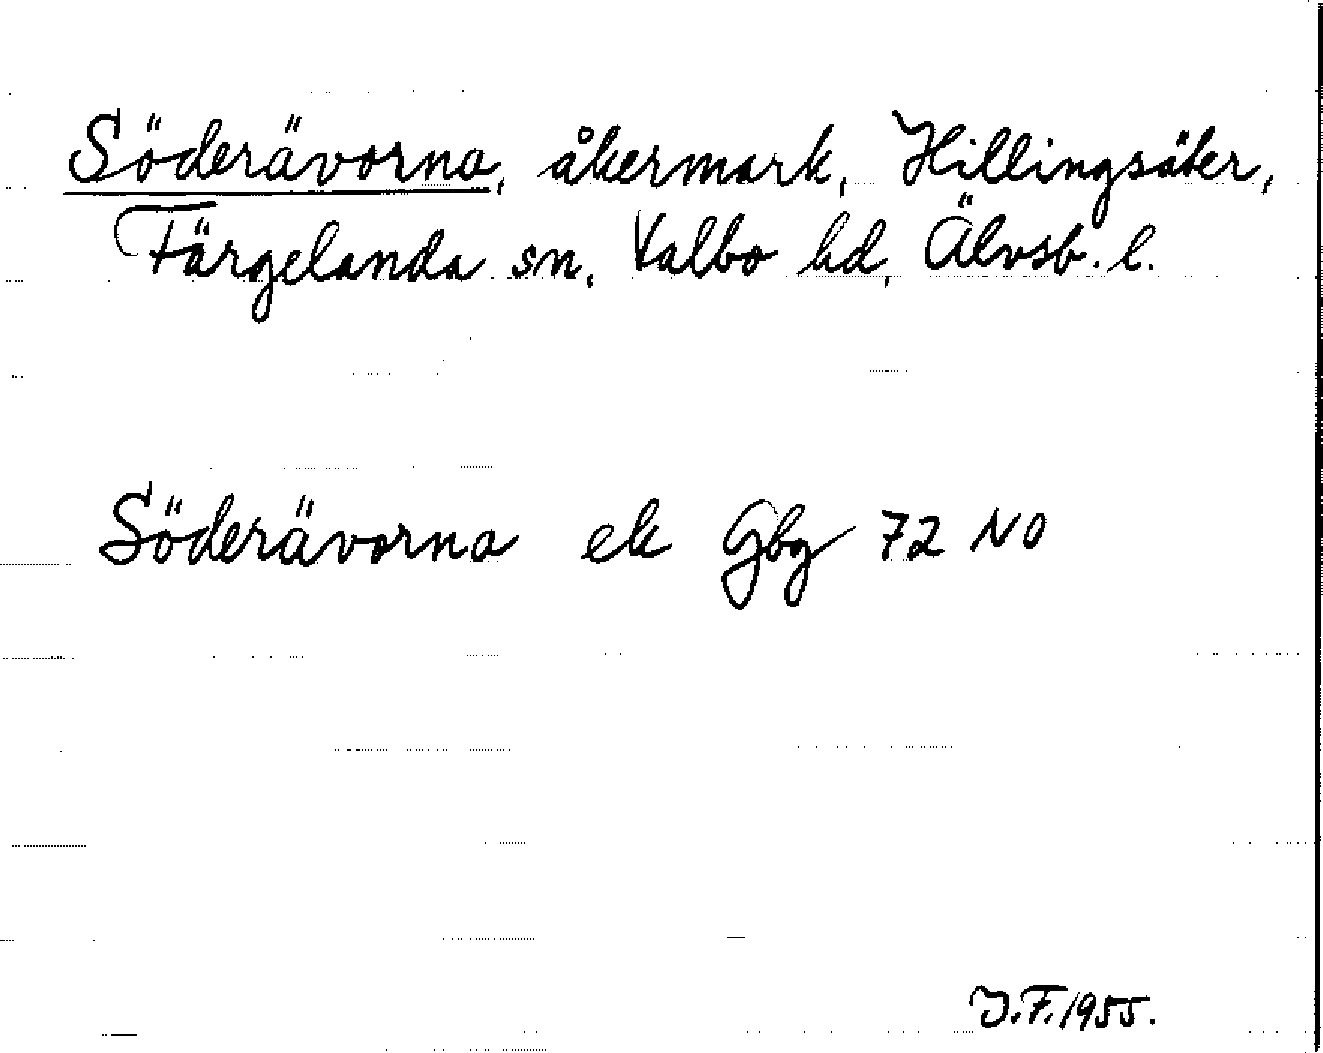 Söderävorna, åkermark, Hillingsäter,
Färgelanda sn, Valbo hd, Älvsb. l.
Söderävorna ek Gbg 72 NO
J.F. 1955.